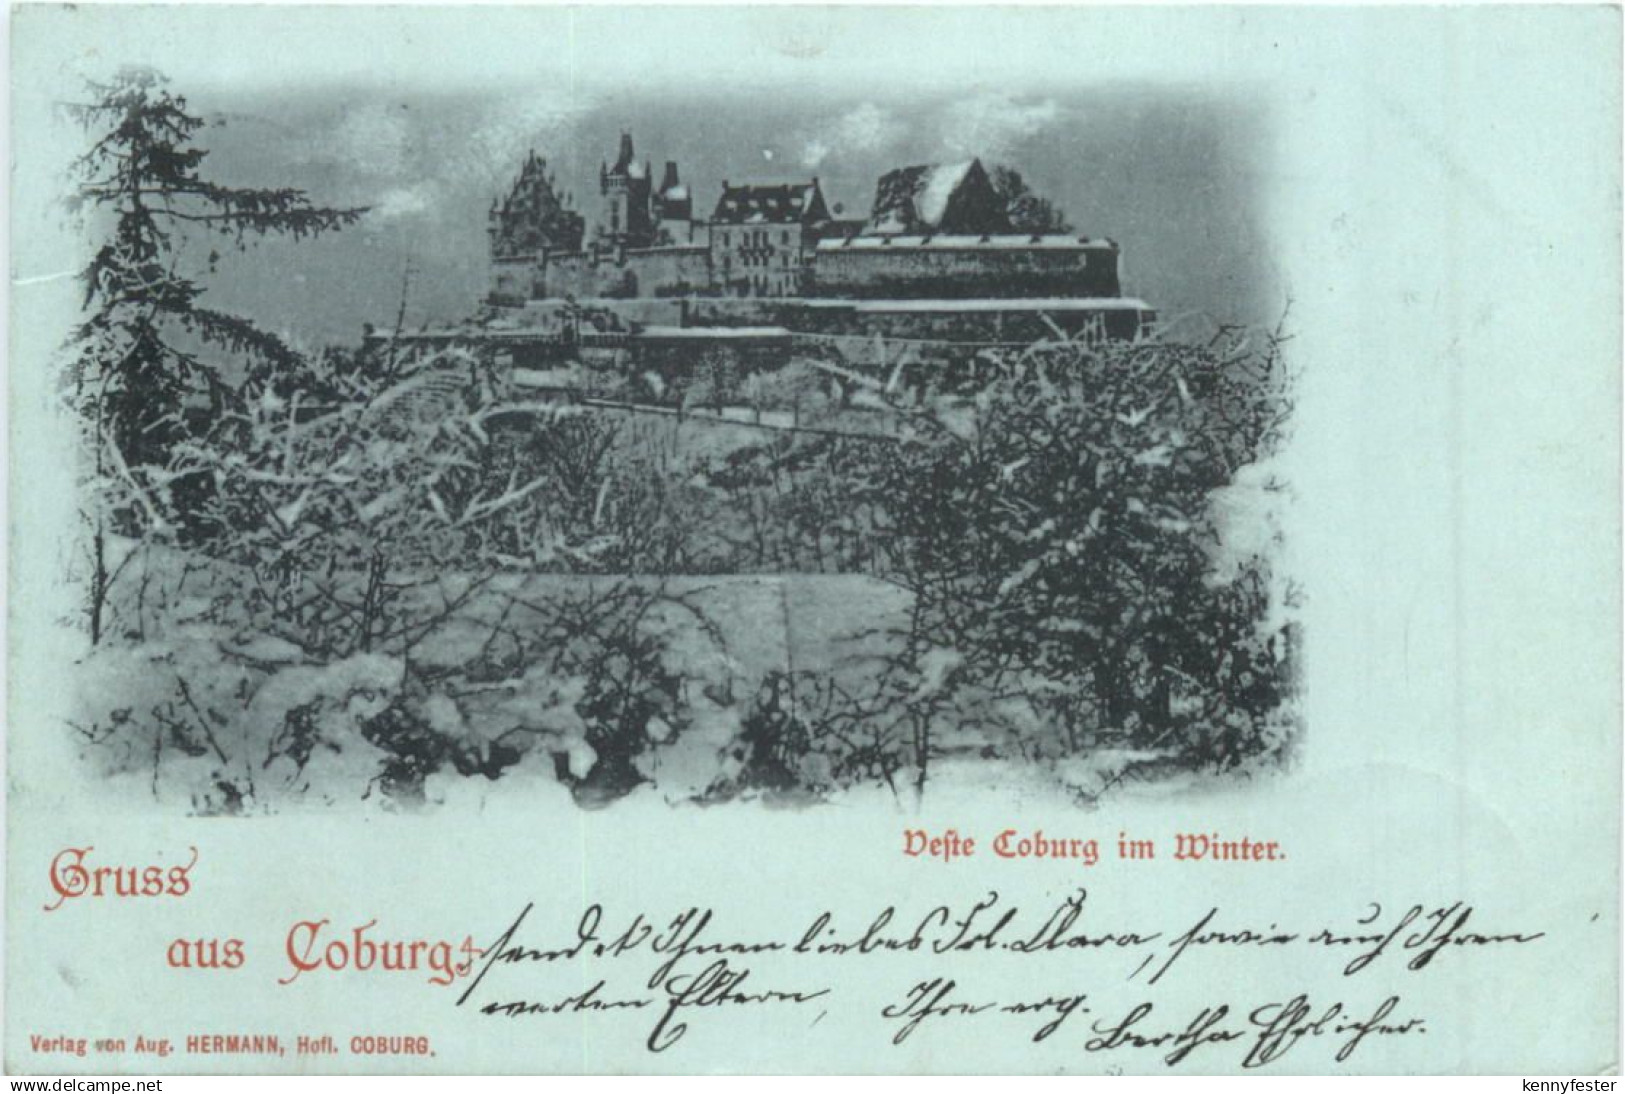 Veste Coburg im Winter.
Gruss
aus Coburg.
sendet Ihnen liebes Frl. Clara, sowie auch Ihren
werten Eltern, Ihre erg.
Bertha Ehrlicher.
Verlag von Aug. HERMANN, Hofl. COBURG.
www.delcampe.net
kennyfester